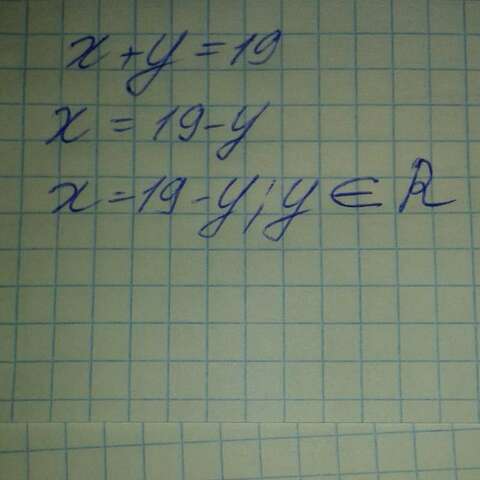 x+y=19
x=19-y
x=19-y; y∈R